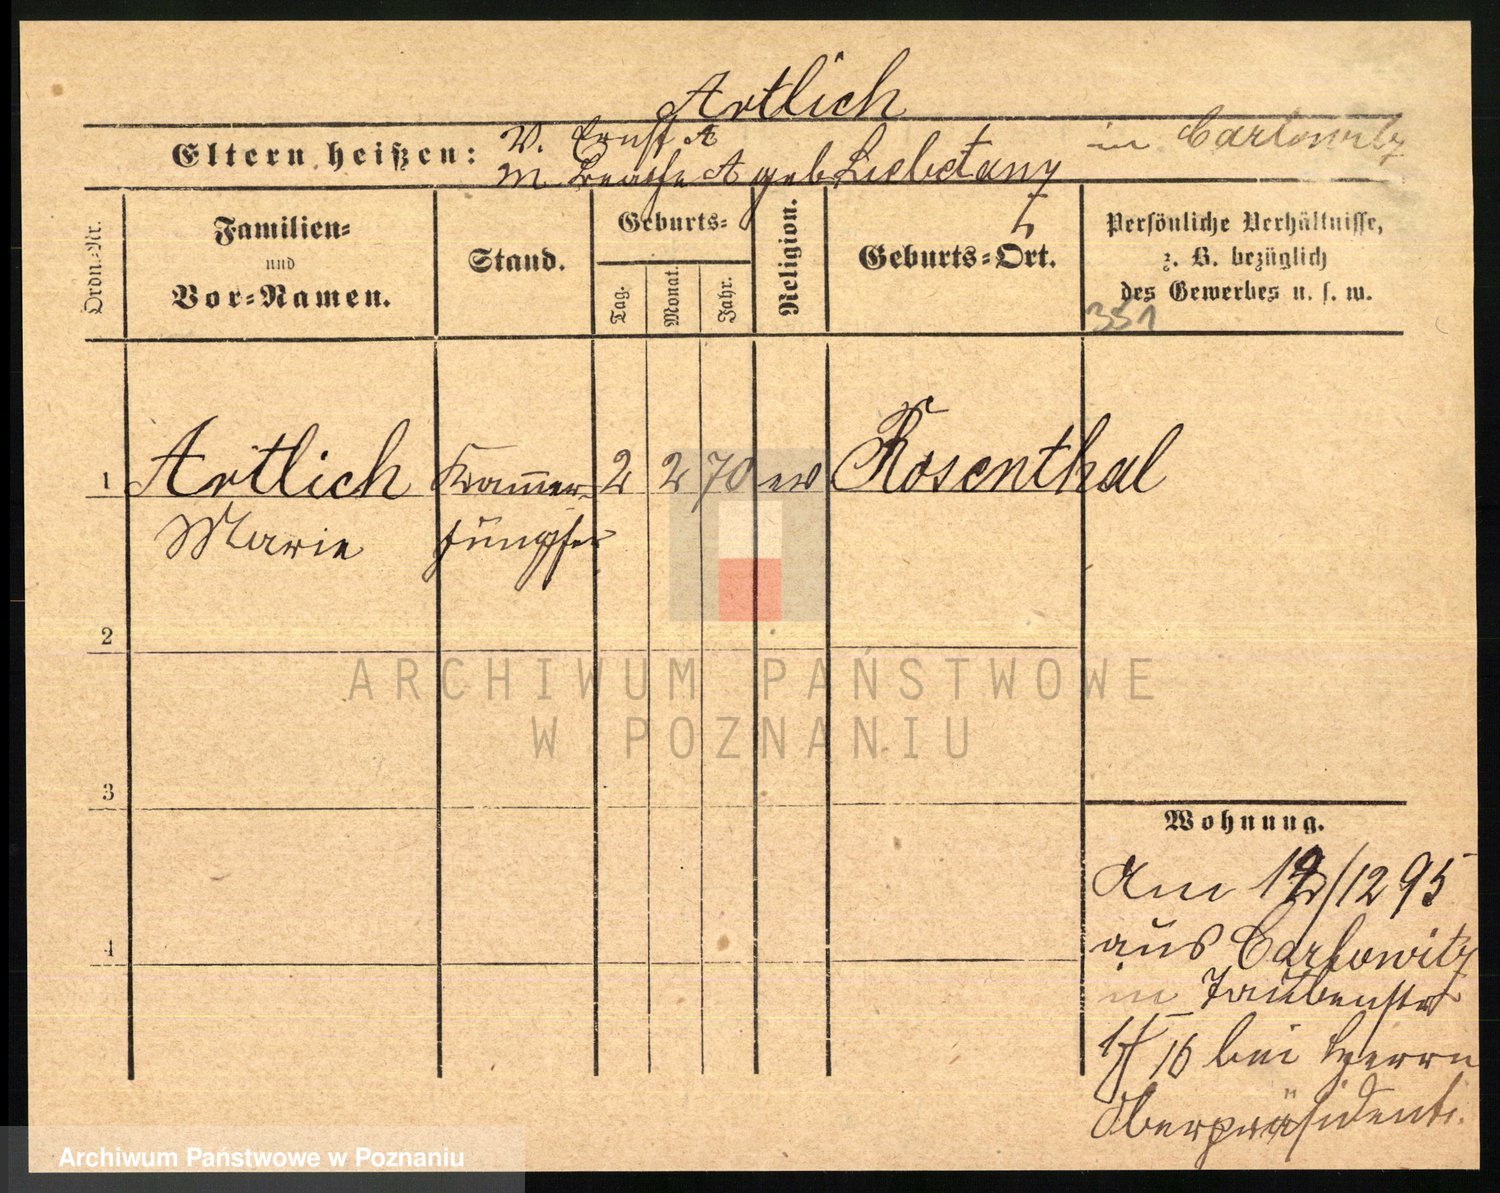 Artlich
Eltern heißen:
V. Ernst A
M. Beathe A geb Liebetanz
in Carlowitz
Ordn.-Nr.
Familien-
und
Vor-Namen.
Stand.
Geburts-
Tag.
Monat.
Jahr.
Religion.
Geburts-Ort.
Persönliche Verhältnisse,
z. B. bezüglich
des Gewerbes u. s. w.
351
1 Artlich Kammer- 2 2 70 ev Rosenthal
Marie jungfer
2
ARCHIWUM PAŃSTWOWE
W POZNANIU
3
Wohnung.
Am 12/12 95
aus Carlowitz
4
in Taubenstr
16 bei Herrn
Oberpräsident.
Archiwum Państwowe w Poznaniu